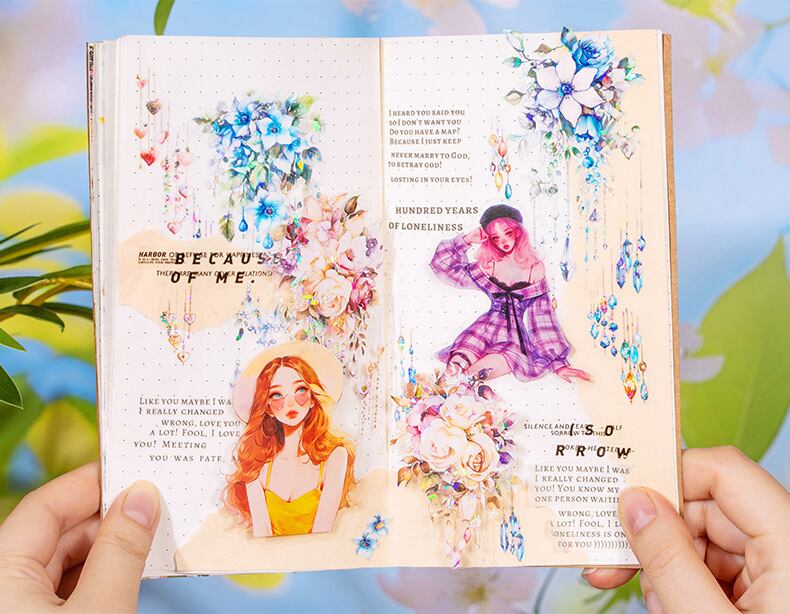 HARBOR OF REFUSE FOR HAPPINESS
BECAUSE
THERE ARE MANY OTHER RELATIONS
OF ME.
LIKE YOU MAYBE I WA
I REALLY CHANGED
WRONG, LOVE YOU
A LOT! FOOL, I LOVE
YOU! MEETING
YOU WAS FATE,
I HEARD YOU SAID YOU
SO I DON'T WANT YOU
DO YOU HAVE A MAP?
BECAUSE I JUST KEEP
NEVER MARRY TO GOD,
TO BETRAY GOD!
LOSTING IN YOUR EYES!
HUNDRED YEARS
OF LONELINESS
SILENCE AND
I SO
SORROW
RROW
LIKE YOU MAYBE I WAS
I REALLY CHANGED
YOU! YOU KNOW MY
ONE PERSON WAITI
WRONG, LOVE
A LOT! FOOL, I LO
LONELINESS IS ON
FOR YOU ))))))))))